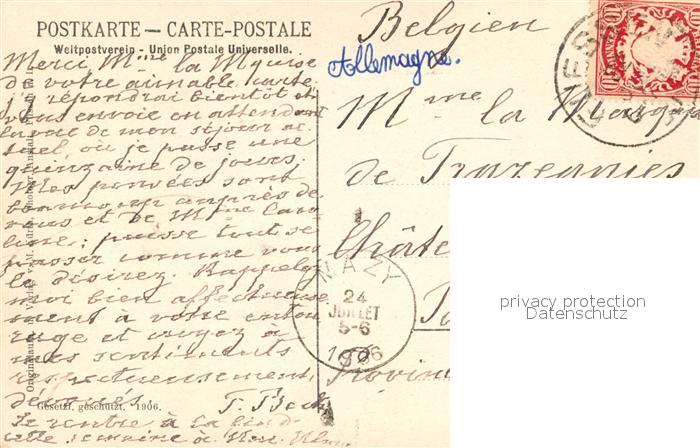 POSTKARTE — CARTE-POSTALE
Weltpostverein - Union Postale Universelle.
Merci Mme la Mquise
de votre aimable carte
J'y répondrai bientôt et
vous envoie en attendant
de mon séjour ac-
tuel, où je passe une
quinzaine de jours.
Mes pensées sont
beaucoup auprès de
vous et de Mme Caro
line; puisse tout se
passer comme vous
le désirez. Rappelez
moi bien affectueuse
ment à votre entou
rage et croyez à
mes sentiments
respectueusement
dévoués.
Gesetzl. geschützt. 1906.
Je rentre à la fin de
cette semaine à
Belgien
Allemagne.
Mme la Marq
de Trazegnies
Châte
MAZY
24
JUILLET
5-6
1906
Provin
10
privacy protection
Datenschutz